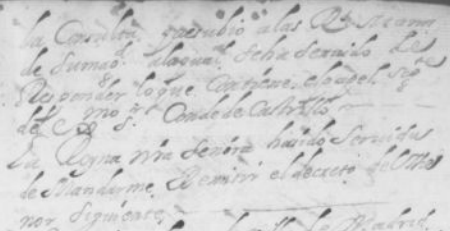 la Consulta que subio a las Rs Manos
de su magd. a la qual se ha servido de
Responder lo que Contiene el papel sigte
del Exmo sr. Conde de Castrillo
La Reyna nra señora ha sido servida
de Mandarme Remitir el decreto del
nor siguiente
de Madrid